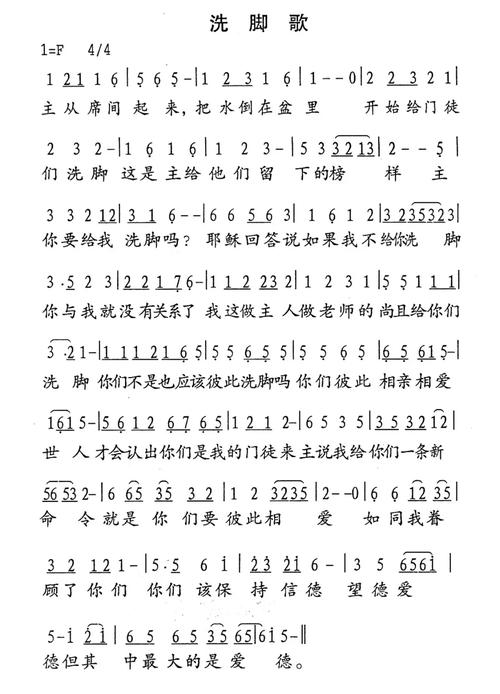 洗 脚 歌
1=F 4/4
1 2 1 1 6 | 5 6 5 - | 1 2 3 1 6 | 1 - - 0 | 2 2 3 2 1 |
主从席间起来,把水倒在盆里 开始给门徒
2 3 2 - | 1 6 1 6 | 1 2 3 - | 5 3 3 2 1 3 | 2 - - 5 |
们洗脚这是主给他们留下的榜样主
3 3 2 1 2 | 3 1 6 - - | 6 6 5 6 3 | 3 1 6 1 2 | 3 2 3 5 3 2 3 |
你要给我洗脚吗?耶稣回答说如果我不给你洗脚
3 · 5 2 3 | 2 2 2 1 7 6 - | 1 1 2 2 3 2 | 1 2 3 1 | 5 1 5 1 2 |
你与我就没有关系了我这做主人做老师的尚且给你们
3 · 2 1 - | 1 1 1 2 1 6 5 | 5 5 6 5 | 5 5 1 5 | 6 5 6 1 5 - |
洗脚你们不是也应该彼此洗脚吗你们彼此相亲相爱
1 6 1 5 - | 5 6 1 2 6 7 6 5 | 1 2 1 2 - | 6 5 3 5 | 3 5 3 2 1 2 |
世人才会认出你们是我的门徒来主说我给你们一条新
5 6 5 3 2 - | 6 6 5 3 5 3 2 | 1 2 3 2 3 5 | 2 - - 0 | 6 6 1 2 3 5 |
命令就是你们要彼此相爱如同我眷
3 2 1 2 2 1 - | 5 · 5 6 1 | 2 3 2 1 6 - | 3 5 6 5 6 1 |
顾了你们你们该保持信德望德爱
5 - 1 2 1 | 6 5 6 5 3 5 6 5 | 6 1 5 - ‖
德但其中最大的是爱德。